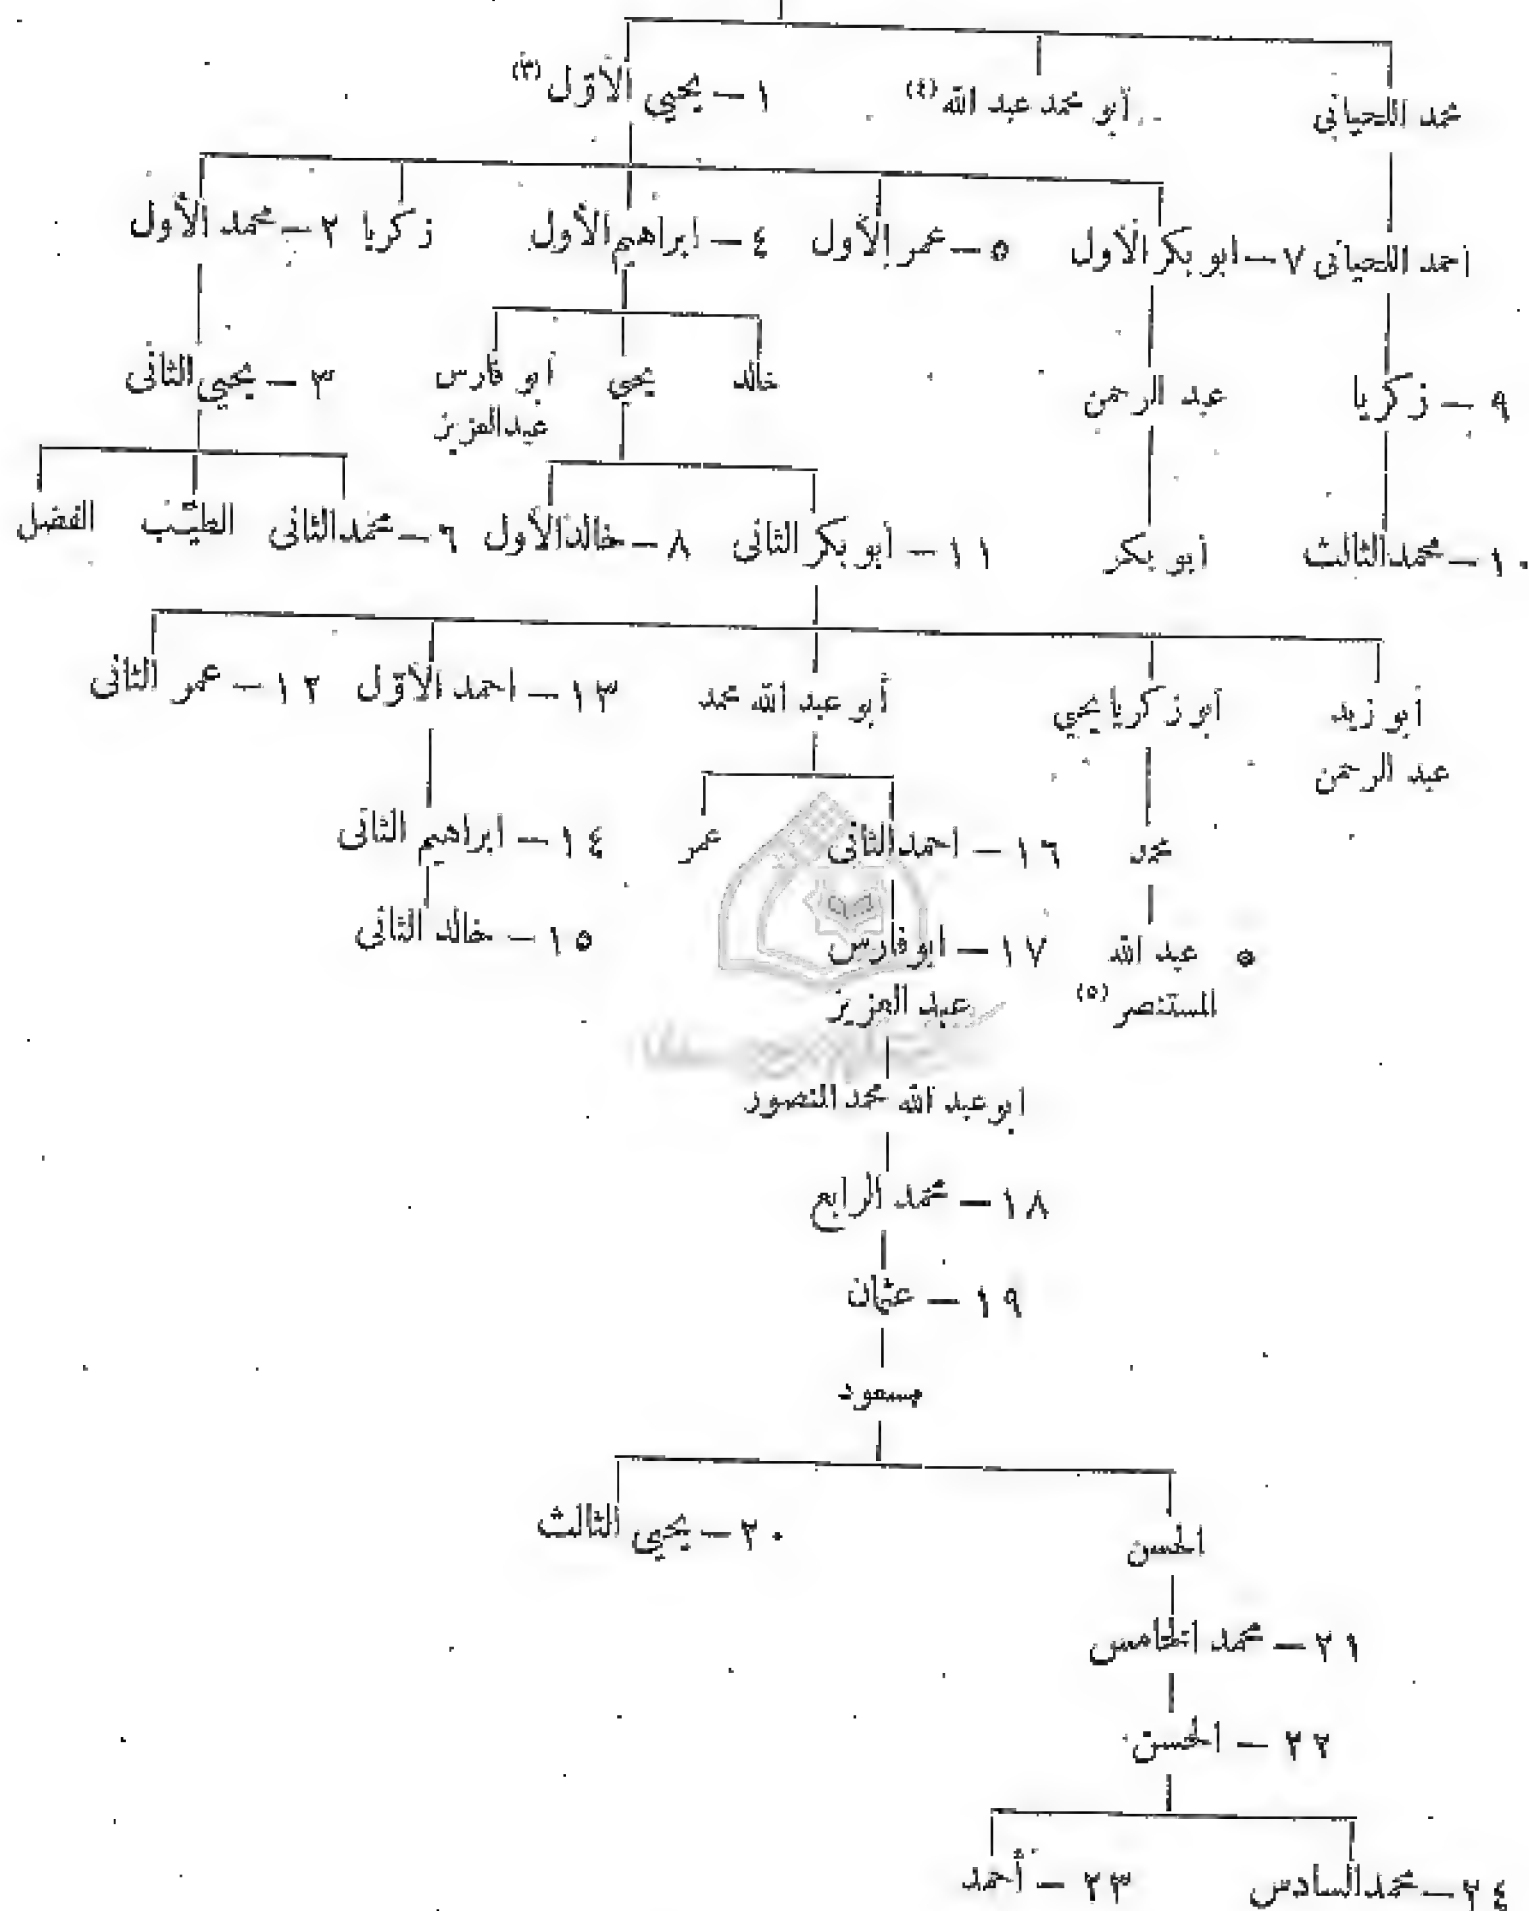 محمد اللحيانى أبو محمد عبد الله (٤) ١ – يحيى الأوّل (٣)
احمد اللحيانى ٧ – ابو بكر الأول ٥ – عمر الأول ٤ – ابراهيم الأول زكريا ٢ – محمد الأول
٩ – زكريا عبد الرحمن خالد يحيى أبو فارس ٣ – يحيى الثانى
عبد العزيز
١٠ – محمد الثالث أبو بكر ١١ – أبو بكر الثانى ٨ – خالد الأول ٦ – محمد الثانى الطيّب الفضل
أبو زيد أبو زكريا يحيى أبو عبد الله محمد ١٣ – احمد الأوّل ١٢ – عمر الثانى
عبد الرحمن
محمد ١٦ – احمد الثانى عمر ١٤ – ابراهيم الثانى
٥ عبد الله ١٧ – ابو فارس ١٥ – خالد الثانى
المستنصر (٥) عبد العزيز
ابو عبد الله محمد المنصور
١٨ – محمد الرابع
١٩ – عثمان
مسعود
الحسن ٢٠ – يحيى الثالث
٢١ – محمد الخامس
٢٢ – الحسن
٢٤ – محمد السادس ٢٣ – أحمد